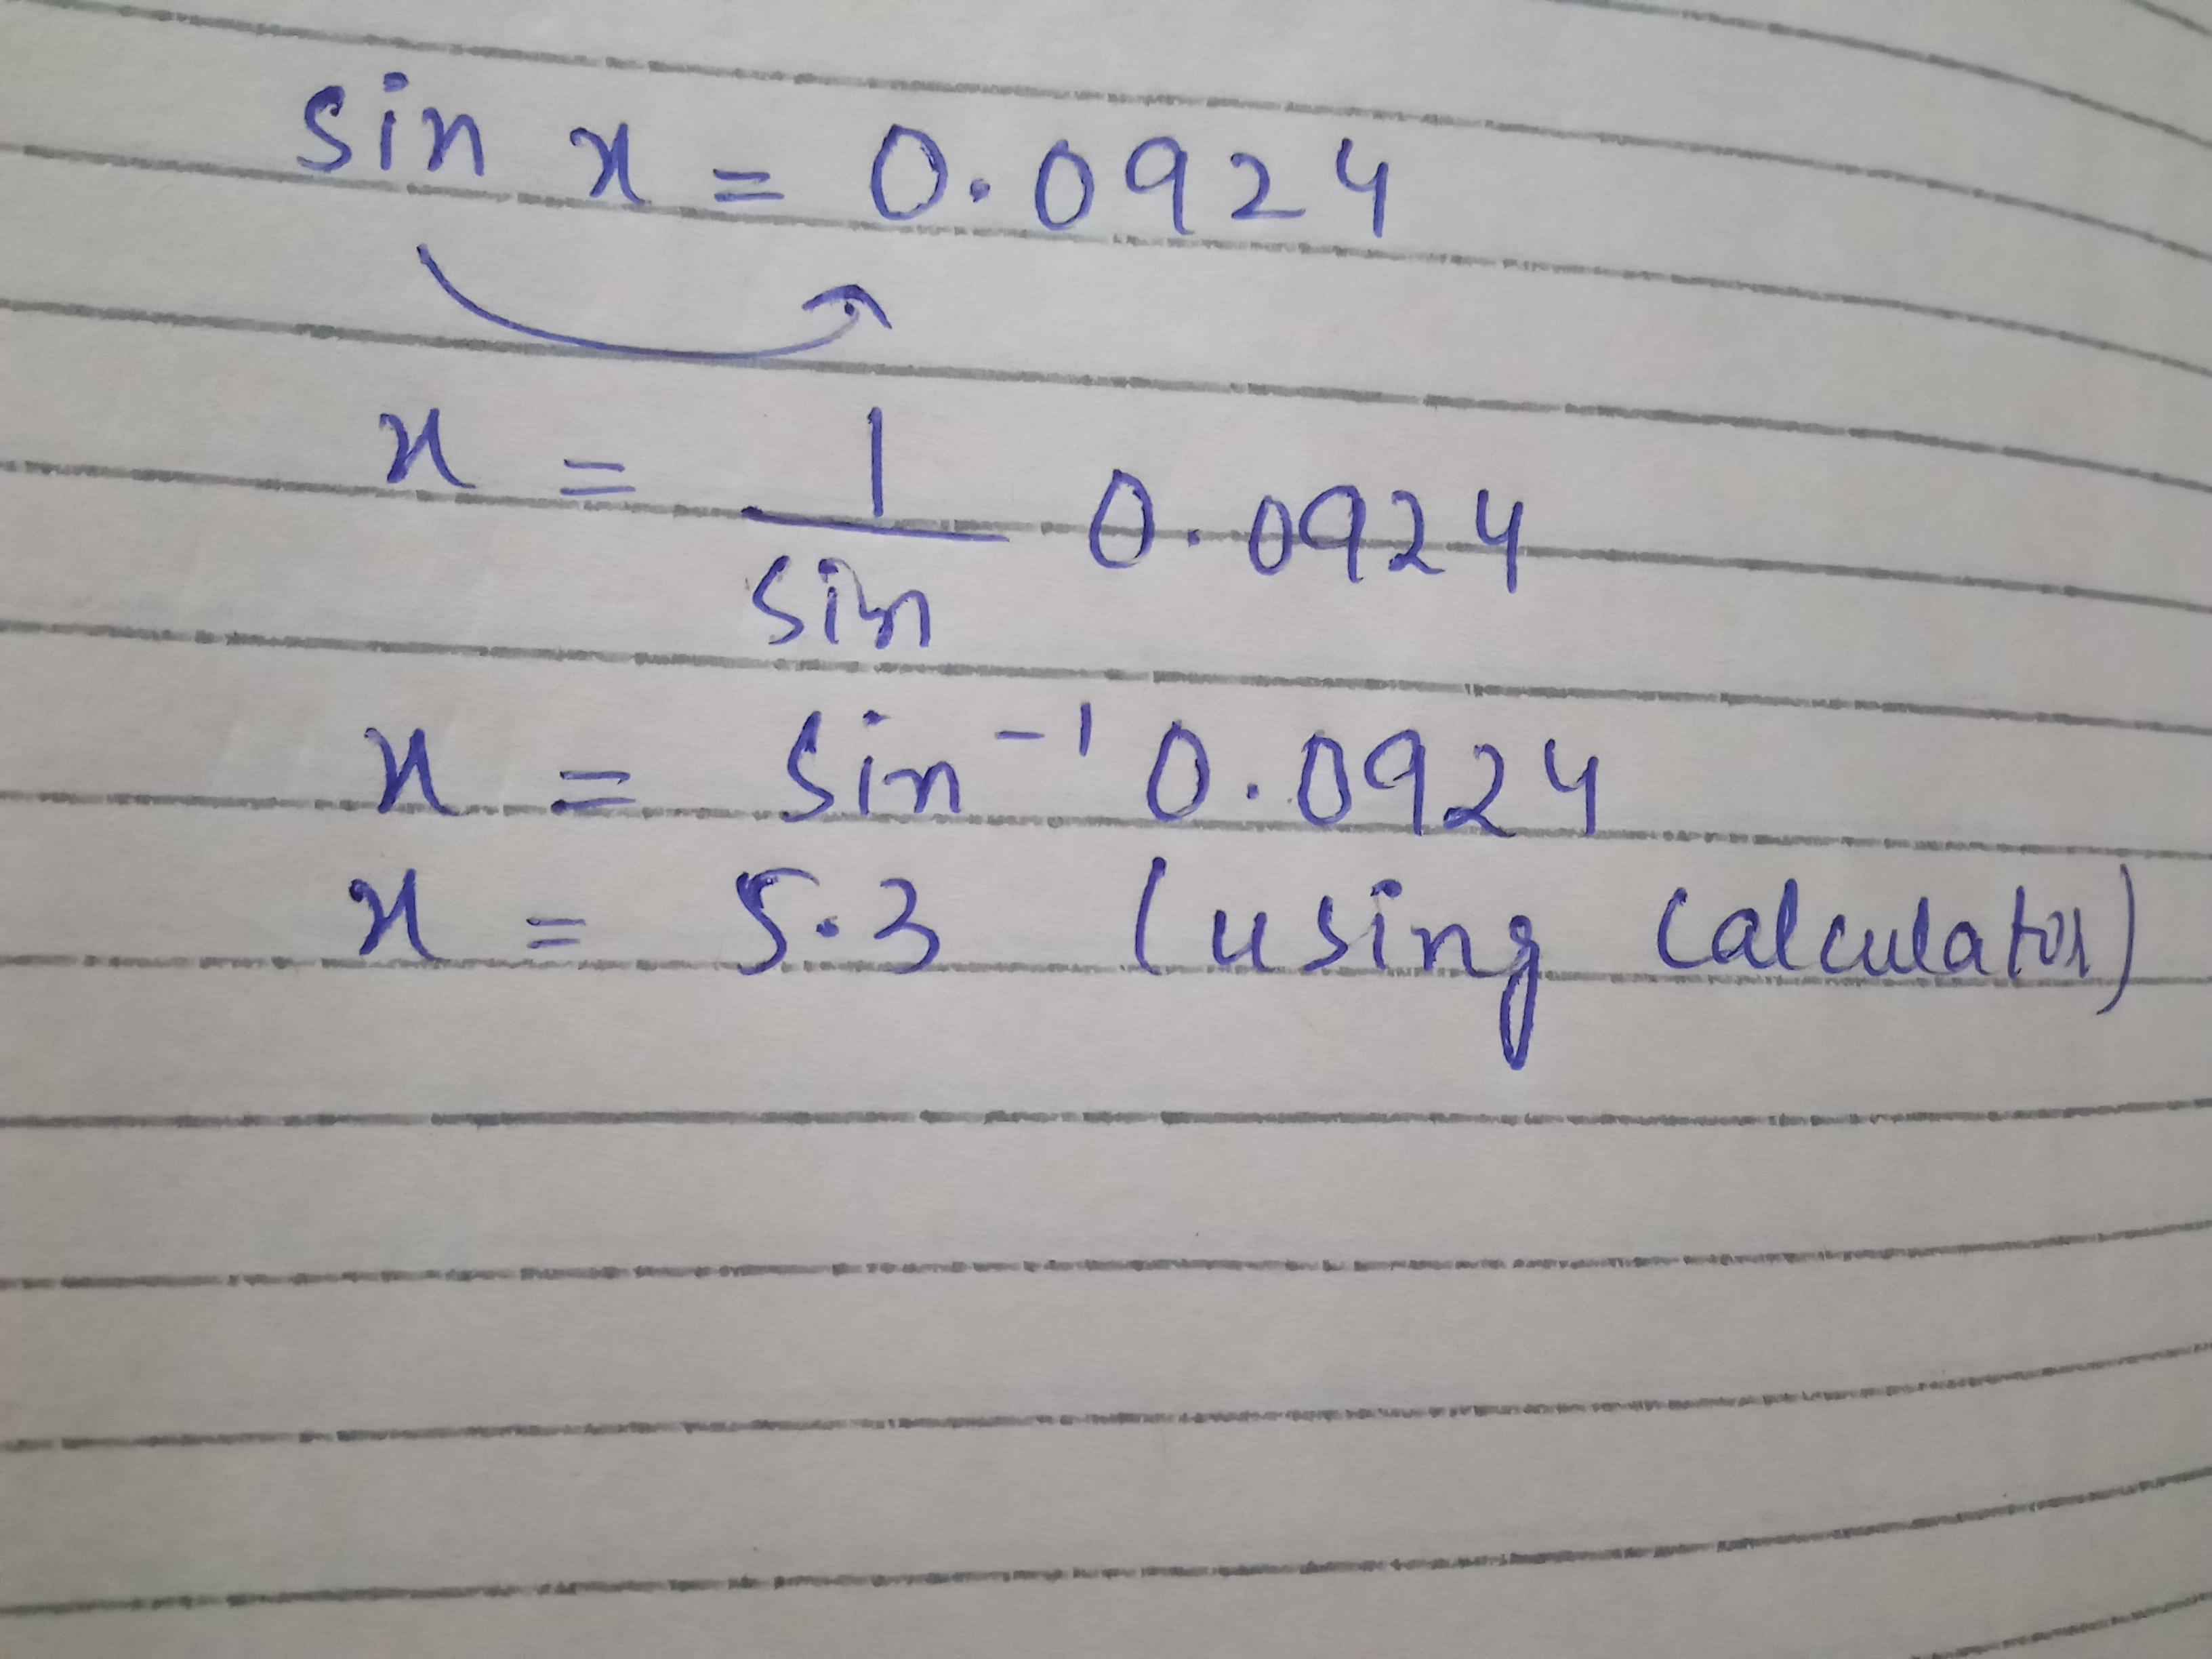 sin x = 0.0924
x = 1/sin 0.0924
x = sin⁻¹ 0.0924
x = 5.3 (using calculator)